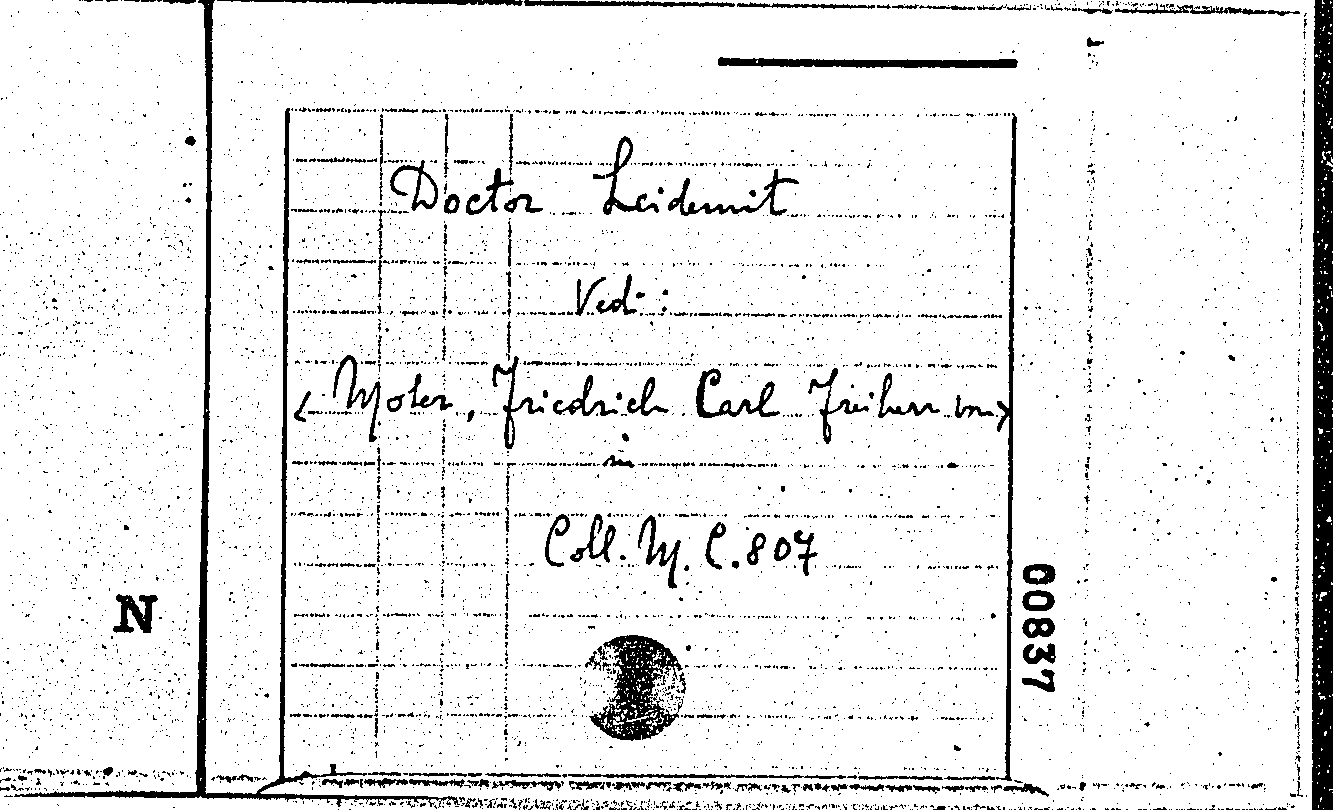 Doctor Leidemit
Ved-:
<Moser, Friedrich Carl Freiherr von>
in
Coll. M. C. 807
N
00837